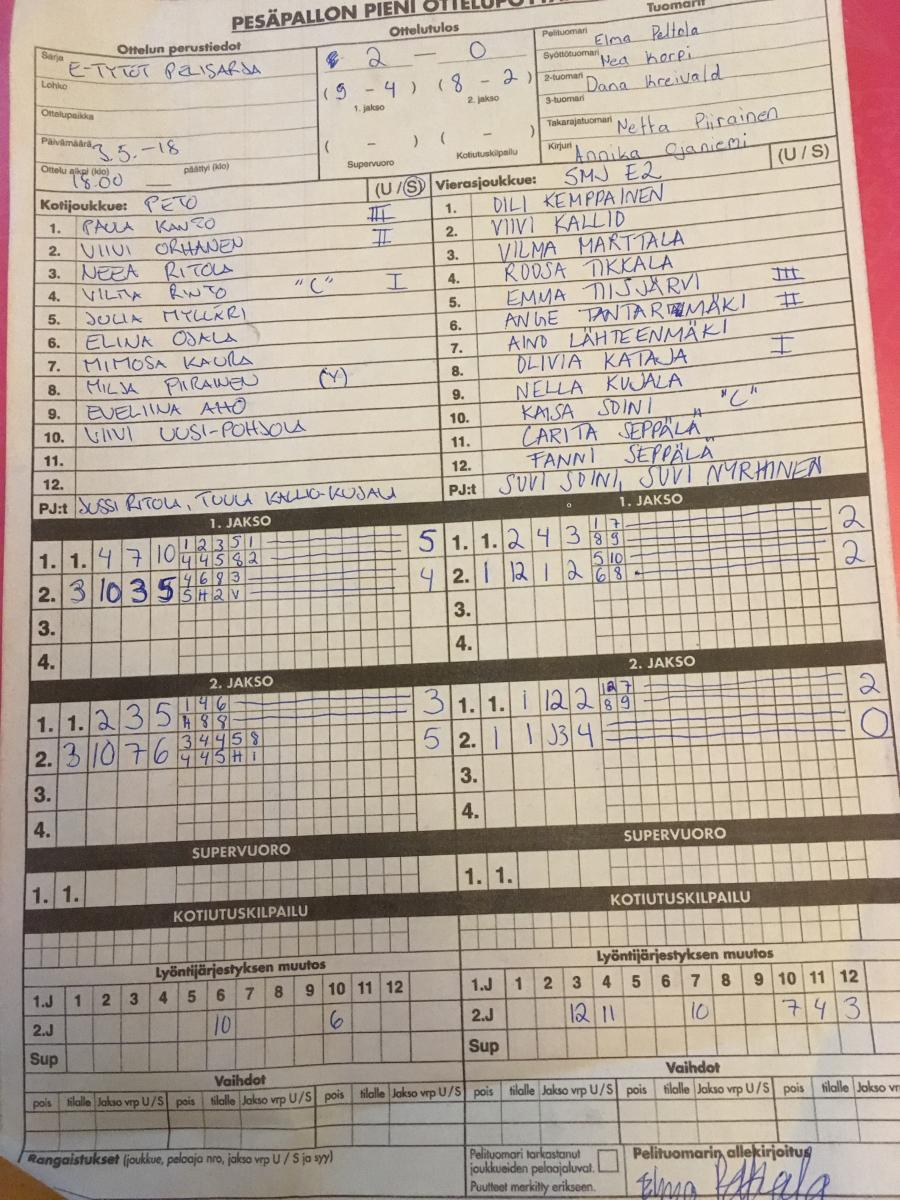 PESÄPALLON PIENI
Ottelun perustiedot
Ottelutulos
Tuomarit
Sarja E-TYTÖT PELISARJA
Lohko
Ottelupaikka
Päivämäärä 3.5.-18
Ottelu alkoi (klo) 18.00 — päättyi (klo)
2 - 0
(9 - 4) (8 - 2)
1. jakso 2. jakso
( - ) ( - )
Supervuoro Kotiutuskilpailu
Pelituomari Elma Peltola
Syöttötuomari Nea Korpi
2-tuomari Dana Kreivald
3-tuomari
Takarajatuomari Netta Piirainen
Kirjuri Annika Ojaniemi
Kotijoukkue: PETO (U / S)
1. PAULA KANTO III
2. VIIVI ORHANEN II
3. NEEA RITOLA
4. VILMA RINTO "C" I
5. JULIA MYLLÄRI
6. ELINA OJALA
7. MIMOSA KAURA
8. MILJA PIIRAINEN (Y)
9. EVELIINA AHO
10. VIIVI UUSI-POHJOLA
11.
12.
PJ:t JUSSI RITOLA, TUULA KALLIO-KUJALA
Vierasjoukkue: SMJ E2 (U / S)
1. OILI KEMPPAINEN
2. VIIVI KALLIO
3. VILMA MARTTALA
4. ROOSA TIKKALA
5. EMMA TIISJÄRVI III
6. ANGE II
7. AINO LÄHTEENMÄKI
8. OLIVIA KATAJA I
9. NELLA KUJALA
10. KAISA SOINI "C"
11. CARITA SEPPÄLÄ
12. FANNI SEPPÄLÄ
PJ:t SUVI SOINI, SUVI NYRHINEN
1. JAKSO
1. 1. 4 7 10 1 2 3 5 1 5
4 4 5 8 2
2. 3 10 3 5 4 6 8 3 4
5 H 2 V
3.
4.
1. JAKSO
1. 1. 2 4 3 1 7 2
8 9
2. 1 12 1 2 5 10 2
6 8
3.
4.
2. JAKSO
1. 1. 2 3 5 1 4 6 3
H 8 8
2. 3 10 7 6 3 4 4 5 8 5
4 4 5 H 1
3.
4.
2. JAKSO
1. 1. 1 12 2 12 7 2
8 9
2. 1 1 3 4 0
3.
4.
SUPERVUORO
1. 1.
SUPERVUORO
1. 1.
KOTIUTUSKILPAILU
KOTIUTUSKILPAILU
Lyöntijärjestyksen muutos
1.J 1 2 3 4 5 6 7 8 9 10 11 12
2.J 10 6
Sup
Lyöntijärjestyksen muutos
1.J 1 2 3 4 5 6 7 8 9 10 11 12
2.J 12 11 10 7 4 3
Sup
Vaihdot
pois tilalle Jakso vrp U / S pois tilalle Jakso vrp U / S pois tilalle Jakso vrp U / S
Vaihdot
pois tilalle Jakso vrp U / S pois tilalle Jakso vrp U / S pois tilalle Jakso vr
Rangaistukset (joukkue, pelaaja nro, jakso vrp U / S ja syy)
Pelituomari tarkastanut
joukkueiden pelaajaluvat.
Puutteet merkitty erikseen.
Pelituomarin allekirjoitus
Elma Peltola